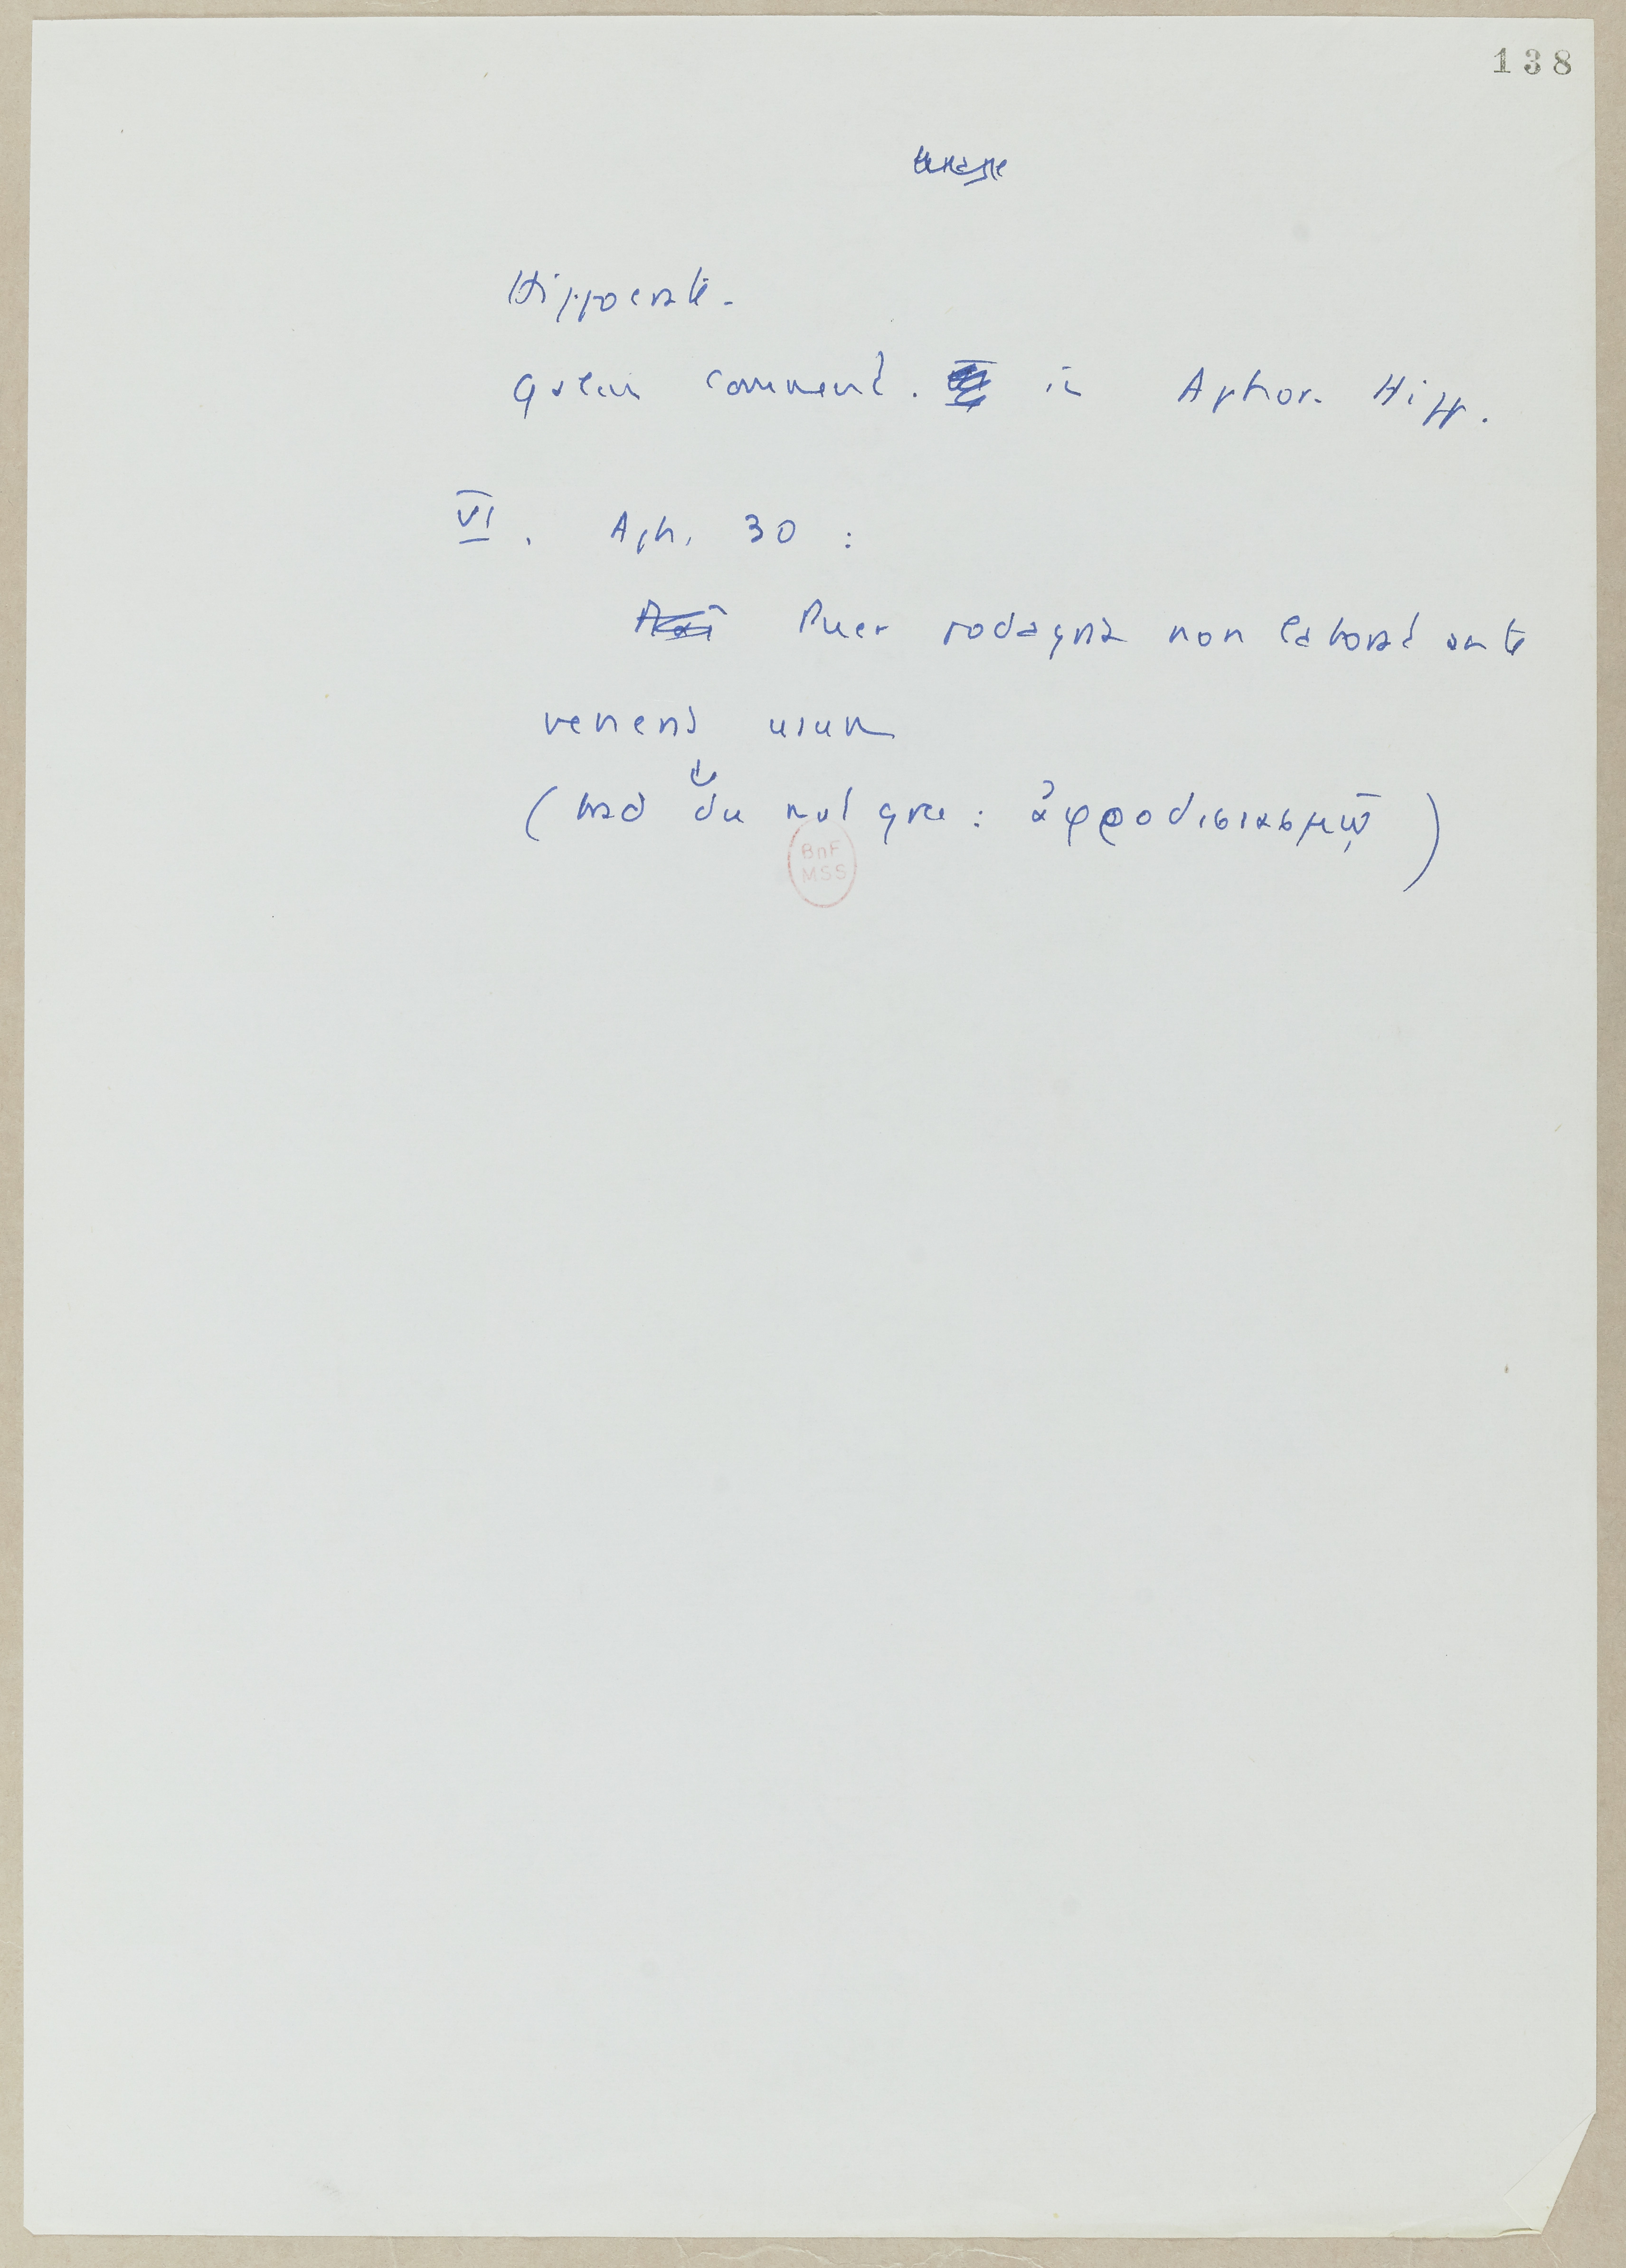 138
Hippocrate.
Galien comment. in Aphor. Hipp.
VI. Aph. 30 :
Puer podagra non laborat ante
veneris usum
(trad du mot grec : ἀφροδισιασμῷ)
BnF
MSS